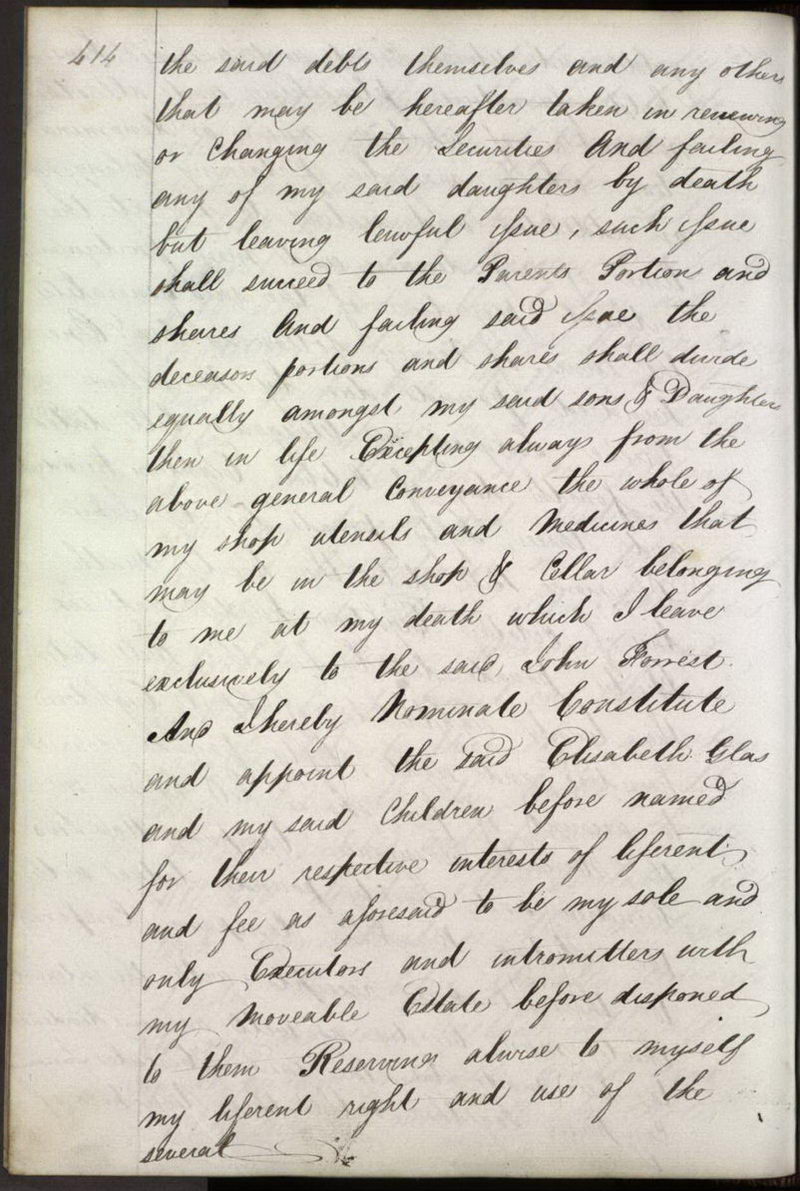 414
the said debts themselves and any others
that may be hereafter taken in renewing
or Changing the Securities And failing
any of my said daughters by death
but leaving lawful issue, such issue
shall succeed to the Parents Portion and
shares And failing said issue the
deceasors portions and shares shall divide
equally amongst my said sons & Daughters
then in life Excepting always from the
above general Conveyance the whole of
my shop utensils and Medicines that
may be in the shop & Cellar belonging
to me at my death which I leave
exclusively to the said John Forrest.
And I hereby Nominate Constitute
and appoint the said Elisabeth Glas
and my said Children before named
for their respective interests of liferent
and fee as aforesaid to be my sole and
only Executors and intromitters with
my moveable Estate before disponed
to them Reserving alwise to myself
my liferent right and use of the
several